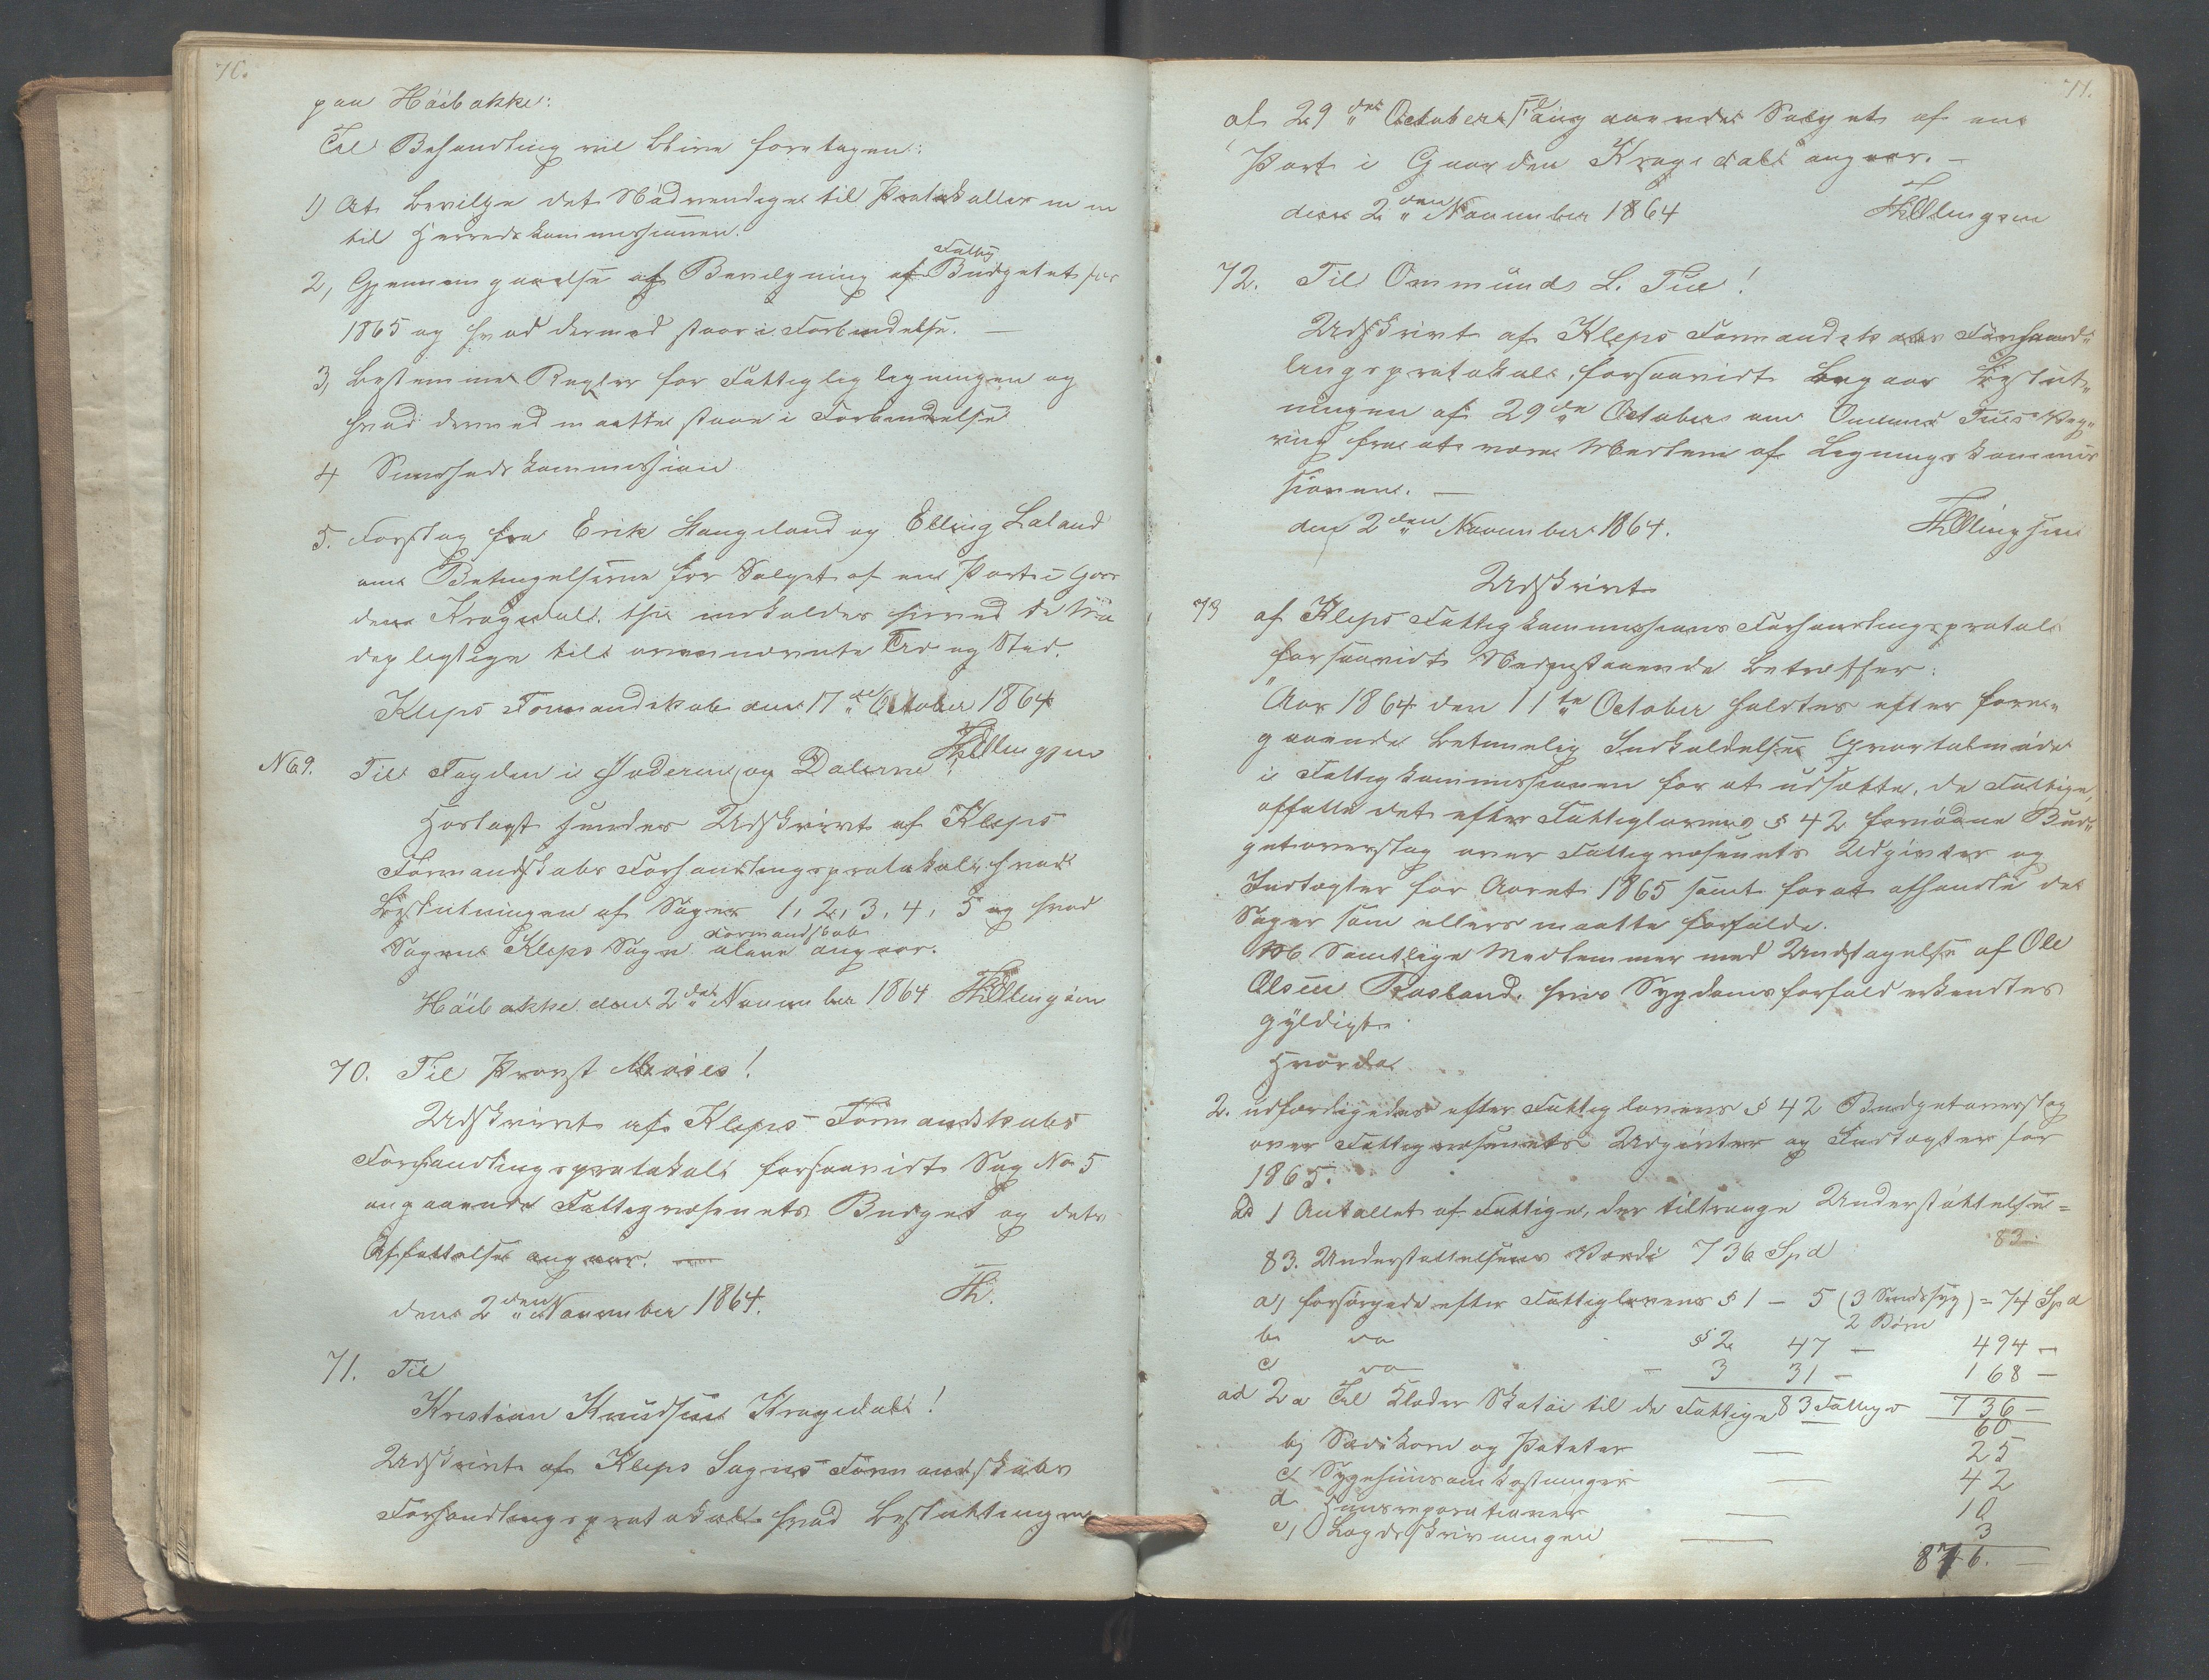 70.
paa Höibakke:
Til Behandling vil blive foretagen:
1) At bevilge det Nödvendige til Protokoller m m
til Herredskommissionen.
2, Gjennemgaaelse af Bevilgning af Fattig Budgetet for
1865 og hvad dermed staar i Forbindelse. —
3, bestemme Regler for Fattigligningen og
hvad dermed maatte staae i Forbindelse
4 Sundhedskommission
5. Forslag fra Erik Haugeland og Elling Laland
om Betingelserne for Salget af en Part i Gaar
den Kragedal. thi indkaldes herved de
deglystige till ovennævnte Tid og Sted.
Kleps Formandskab den 17de October 1864
Th Ellingsen
N 69. Til Fogden i Jæderen og Dalerne!
Hoslagt sendes Udskrivt af Kleps
Formandskabs Forhandlingsprotokoll hvad
Beslutningen af Sager 1, 2, 3, 4, 5 og hvad
Sagene Kleps Sogns Formandskab alene angaar.
Höibakke den 2den November 1864 Th Ellingsen
70. Til Provst
Udskrivt af Kleps Formandskabs
Forhandlingsprotokoll forsaavidt Sag No 5
angaaende Fattigvæsenets Budget og dets
Affattelse angaar. —
den 2den November 1864. Th.
71. Til
Kristian Knudsen Kragedal!
Udskrivt af Kleps Sogns Formandskabs
Forhandlingsprotokoll hvad Beslutningen
71.
af 29de October angaaende Salget af en
Part i Gaarden Kragedal angaar. —
den 2den November 1864 Th Ellingsen
72. Til Ommund L. Tue!
Udskrivt af Kleps Formandskabs Forhand„
lingsprotokoll, forsaavidt angaar Beslut„
ningen af 29de October om Ommund Tues Væg„
ring fra at være Medlem af Ligningskommis
sionen. —
den 2den November 1864. Th Ellingsen
Udskrivt
73 af Kleps Fattigkommissions Forhandlingsprotokol
forsaavidt Nedenstaaende betræffer:
"Aar 1864 den 11te October holdtes efter fore„
gaaende betimelig Indkaldelse Qvartalmöde
i Fattigkommissionen for at udsætte de Fattige,
affatte det efter Fattiglovens § 42 fornödne Bud„
getoverslag over Fattigvæsenets Udgivter og
Indtægter for Aaret 1865 samt forat afhandle de
Sager som ellers maatte forfalde.
Samtlige Medlemmer med Undtagelse af Ole
Olsen Braastand, hvis Sygdomsforfald erkendtes
gyldigt.
Hvorda
2. udfærdigedes efter Fattiglovens § 42 Budgetoverslag
over Fattigvæsenets Udgivter og Indtægter for
1865.
ad 1 Antallet af Fattige, der tiltrænge Understöttelse =
83. Understöttelsens Værdi 736 Spd 83
a, forsörgede efter Fattiglovens § 1 — 5 (3 Sindssyg) = 74 Spd
2 Börn
b do § 2 47 — 494 —
c do — 3 31 — 168 —
ad 2 a Til Klæder Skotöi til de Fattige 83 Fattige 736 —
60
b, Sædekorn og Poteter — 25
c Sygehuusomkostninger — 42
d Huusreparationer — 10
e, Lægdeskrivningen — 3
876. —